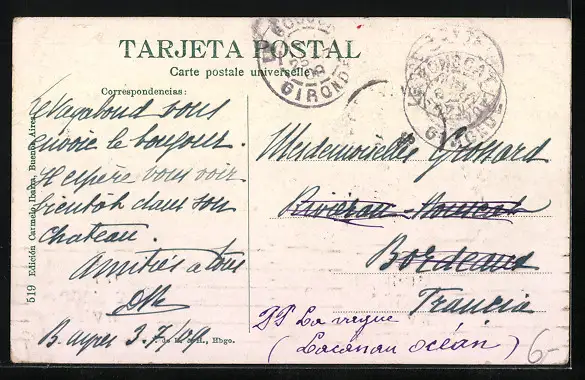 TARJETA POSTAL
Carte postale universelle
Correspondencias:
Le Vagabond vous
envoie le bonjour.
Il espère vous voir
bientôt dans son
chateau.
Amitiés a tous
B. ayres 3.7/09
Mademoiselle Grossard
Bordeaux
Francia
PP La vigne
(Lacanau océan)
6-
519 Edición Carmelo Ibarra, Buenos Aires
H., Hbgo.
GIRONDE
GIRONDE